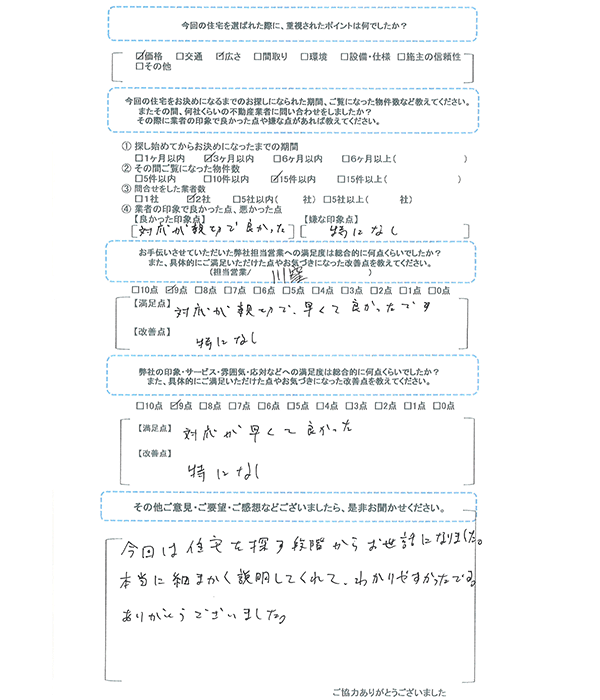 今回の住宅を選ばれた際に、重視されたポイントは何でしたか？
☑価格 □交通 ☑広さ □間取り □環境 □設備・仕様 □施主の信頼性
□その他
今回の住宅をお決めになるまでのお探しになられた期間、ご覧になった物件数など教えてください。
またその間、何社くらいの不動産業者に問い合わせをしましたか？
その際に業者の印象で良かった点や嫌な点があれば教えてください。
① 探し始めてからお決めになったまでの期間
□1ヶ月以内 ☑3ヶ月以内 □6ヶ月以内 □6ヶ月以上( )
② その間ご覧になった物件数
□5件以内 □10件以内 ☑15件以内 □15件以上( )
③ 問合せをした業者数
□1社 ☑2社 □5社以内( 社) □5社以上( 社)
④ 業者の印象で良かった点、悪かった点
【良かった印象点】 【嫌な印象点】
対応が親切で良かった 特になし
お手伝いさせていただいた弊社担当営業への満足度は総合的に何点くらいでしたか？
また、具体的にご満足いただけた点やお気づきになった改善点を教えてください。
(担当営業/ 川窪 )
□10点 ☑9点 □8点 □7点 □6点 □5点 □4点 □3点 □2点 □1点 □0点
【満足点】 対応が親切で、早くて良かったです
【改善点】
特になし
弊社の印象・サービス・雰囲気・応対などへの満足度は総合的に何点くらいでしたか？
また、具体的にご満足いただけた点やお気づきになった改善点を教えてください。
□10点 ☑9点 □8点 □7点 □6点 □5点 □4点 □3点 □2点 □1点 □0点
【満足点】 対応が早くて良かった
【改善点】
特になし
その他ご意見・ご要望・ご感想などございましたら、是非お聞かせください。
今回は住宅を探す段階からお世話になりました。
本当に細まかく説明してくれて、わかりやすかったです。
ありがとうございました。
ご協力ありがとうございました